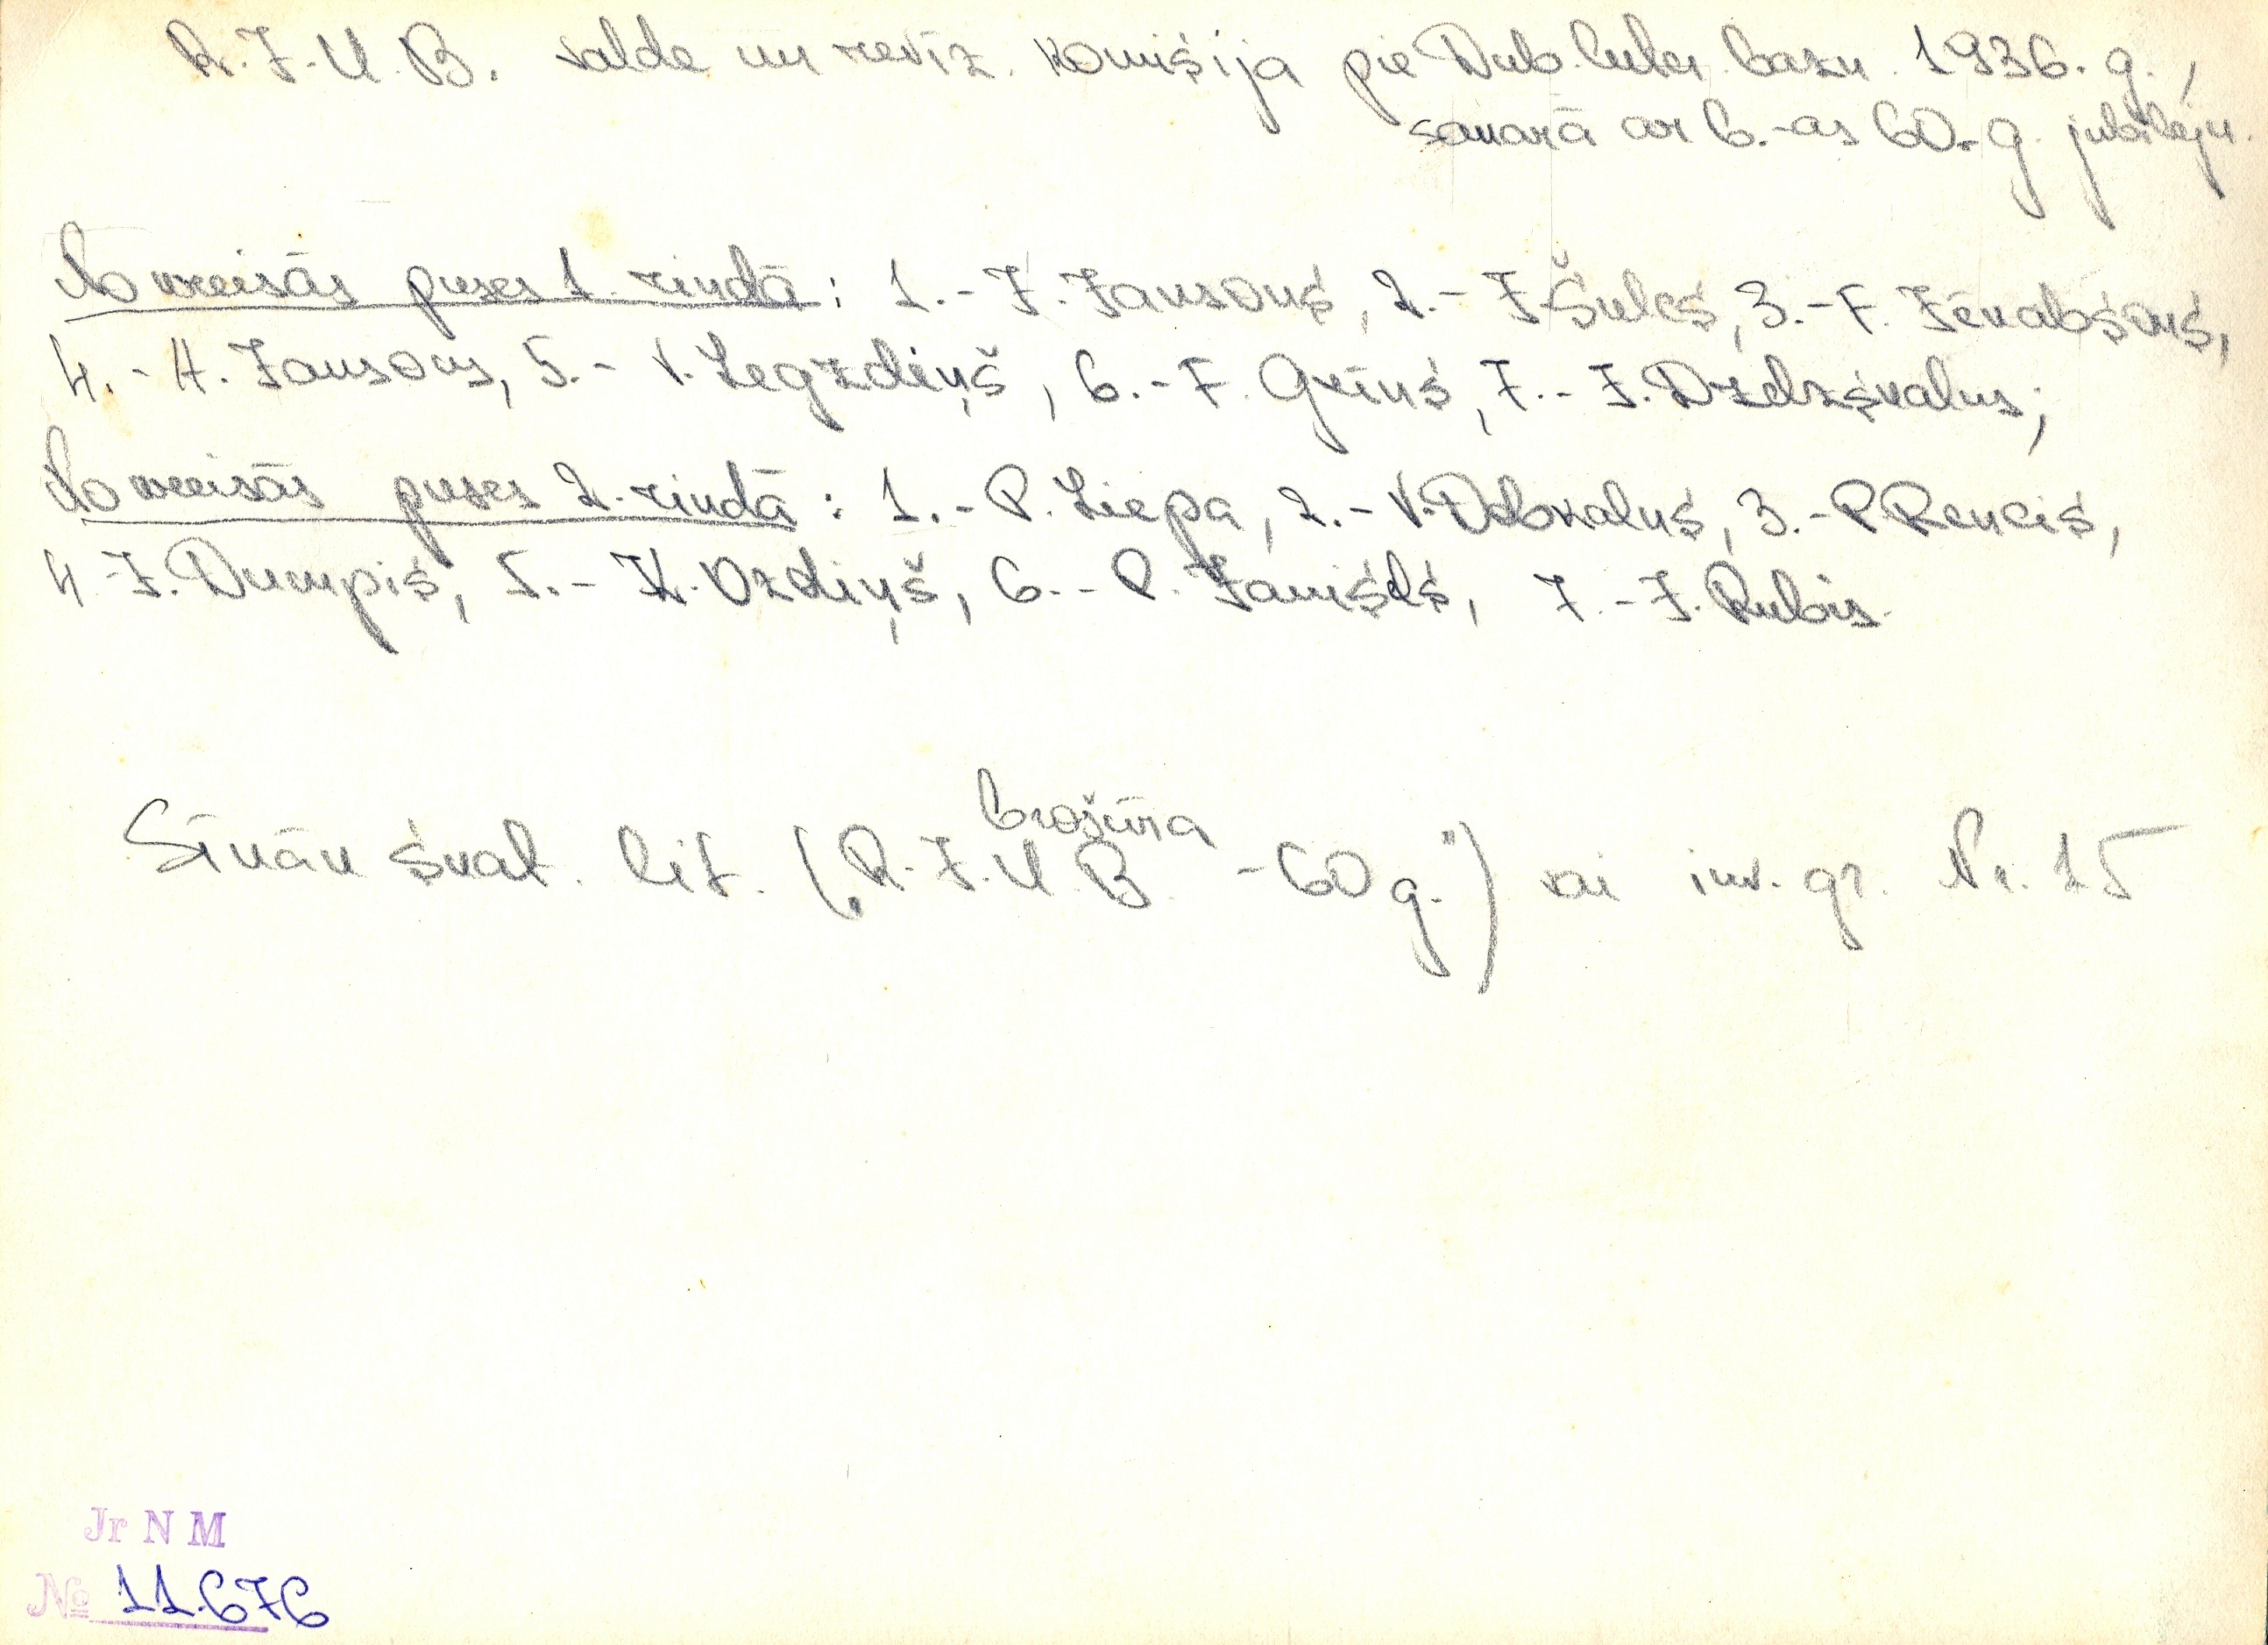 R.J.U.B. valde un revīz. komisija pie Dub. luter. bazn. 1936. g.,
sakarā ar b.-as 60.-g. jubileju.
No kreisās puses 1. rindā : 1.- J. Jansons, 2.- J. Šulcs, 3.- F. Jēkabsons,
4.- A. Jansons, 5.- V. Legzdiņš, 6.- F. Grīns, 7.- J.
No kreisās puses 2. rindā : 1.- P. Liepa, 2.- V. 3.- P. Rencis,
4.- J. Dumpis, 5.- K. Ozoliņš, 6.- P. 7.- J. Rubis.
brošūra
Sīkāk skat. lit. („R.J.U.B. - 60 g.") vai inv. gr. Nr. 15
Jr N M
№ 11.676